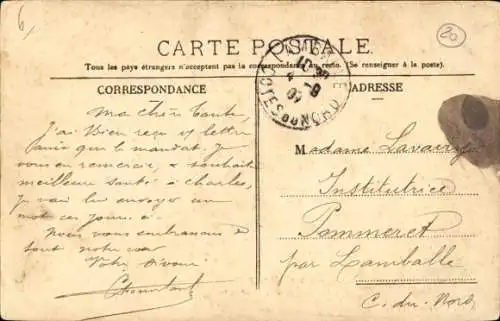 6
20
CARTE POSTALE
Tous les pays étrangers n'acceptent pas la correspondance au recto. (Se renseigner à la poste).
CORRESPONDANCE
ADRESSE
COTES DU NORD
Ma chère tante,
J'ai Bien reçu ta lettre
ainsi que le mandat. Je
vous en remercie, & souhaite
meilleure santé à Charles,
Je vai lui envoyer un
mot ces jours ci.
Nous vous embrassons de
tout notre
Votre
Madame
Institutrice
Pommeret
par Lamballe
C. du Nord